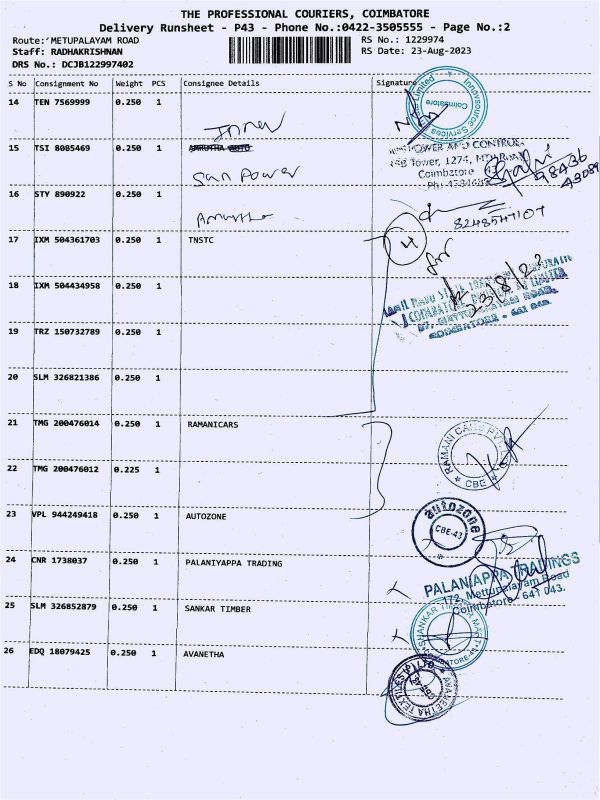 THE PROFESSIONAL COURIERS, COIMBATORE
Delivery Runsheet - P43 - Phone No.:0422-3505555 - Page No.:2
Route: METUPALAYAM ROAD RS No.: 1229974
Staff: RADHAKRISHNAN RS Date: 23-Aug-2023
DRS No.: DCJB122997402
S No Consignment No Weight PCS Consignee Details Signature
14 TEN 7569999 0.250 1
Inner
Innovsource Services
Coimbatore
15 TSI 8085469 0.250 1
San Power
POWER AND CONTROL
Tower, 1274, MTP Road
Coimbatore
98436
43089
16 STY 890922 0.250 1
Amrutha
8248547107
17 IXM 504361703 0.250 1 TNSTC
4
for
18 IXM 504434958 0.250 1
23/8/23
COIMBATORE
19 TRZ 150732789 0.250 1
20 SLM 326821386 0.250 1
21 TMG 200476014 0.250 1 RAMANICARS
RAMANI CARS PVT
CBE
22 TMG 200476012 0.225 1
23 VPL 944249418 0.250 1 AUTOZONE
autozone
CBE-43
24 CNR 1738037 0.250 1 PALANIYAPPA TRADING
PALANIAPPA TRADINGS
172, Mettupalayam Road
Coimbatore - 641 043.
25 SLM 326852879 0.250 1 SANKAR TIMBER
SHANKAR TIMBER MART
COIMBATORE-43
26 EDQ 18079425 0.250 1 AVANETHA